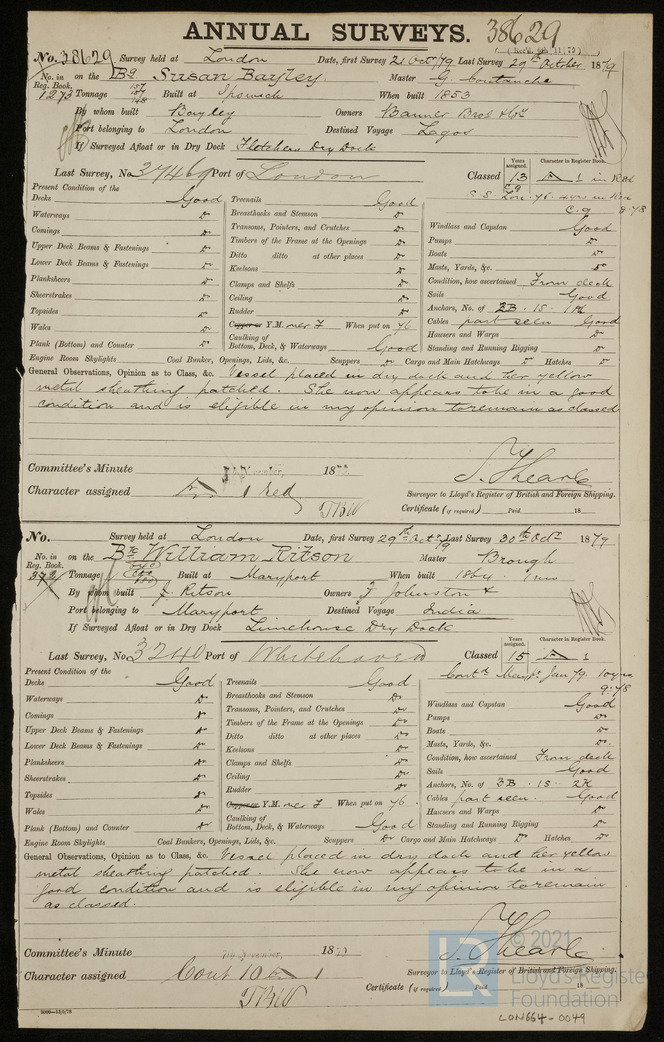 ANNUAL SURVEYS. 38629
No. 38629 Survey held at London Date, first Survey 2 Oct/79 Last Survey 29th October 1879
No. in Reg. Book. 1273 on the Bq Susan Bayley Master G Coutanche
Tonnage 148 Built at Ipswich When built 1853
By whom built Bayley Owners Banner Bros
Port belonging to London Destined Voyage Lagos
If Surveyed Afloat or in Dry Dock Fletchers Dry Dock
Last Survey, No. 37469 Port of London Classed Years assigned. 13 Character in Register Book. A 1 in Red
Present Condition of the
Decks Good Treenails Good
Waterways Do Breasthooks and Stemson Do Windlass and Capstan Good
Comings Do Transoms, Pointers, and Crutches Do Pumps Do
Upper Deck Beams & Fastenings Do Timbers of the Frame at the Openings Do Boats Do
Lower Deck Beams & Fastenings Do Ditto ditto at other places Do Masts, Yards, &c. Do
Planksheers Do Keelsons Do Condition, how ascertained From deck
Sheerstrakes Do Clamps and Shelfs Do Sails Good
Topsides Do Ceiling Do Anchors, No. of 2B. 1S. 1K
Wales Do Rudder Do Cables part seen Good
Plank (Bottom) and Counter Do Copper Y.M. over F When put on 76 Hawsers and Warps Do
Caulking of Bottom, Deck, & Waterways Good Standing and Running Rigging Do
Engine Room Skylights Coal Bunker, Openings, Lids, &c. Scuppers Do Cargo and Main Hatchways Do Hatches Do
General Observations, Opinion as to Class, &c. Vessel placed in dry dock and her yellow
metal sheathing patched. She now appears to be in a good
condition and is eligible in my opinion to remain as classed
Committee's Minute November, 18
Character assigned A 1 Red
S. Thearle
Surveyor to Lloyd's Register of British and Foreign Shipping.
Certificate (if required) Paid 18
No. Survey held at London Date, first Survey 29th Oct/79 Last Survey 30th Oct 1879
No. in Reg. Book. on the Bk William Ritson Master Brough
Tonnage Built at Maryport When built 1864
By whom built J. Ritson Owners J Johnston &
Port belonging to Maryport Destined Voyage India
If Surveyed Afloat or in Dry Dock Limehouse Dry Dock
Last Survey, No. 3240 Port of Whitehaven Classed Years assigned. 15 Character in Register Book. A 1
Present Condition of the
Decks Good Treenails Good
Waterways Do Breasthooks and Stemson Do Windlass and Capstan Good
Comings Do Transoms, Pointers, and Crutches Do Pumps Do
Upper Deck Beams & Fastenings Do Timbers of the Frame at the Openings Do Boats Do
Lower Deck Beams & Fastenings Do Ditto ditto at other places Do Masts, Yards, &c. Do
Planksheers Do Keelsons Do Condition, how ascertained From deck
Sheerstrakes Do Clamps and Shelfs Do Sails Good
Topsides Do Ceiling Do Anchors, No. of 3B. 1S. 2K
Wales Do Rudder Do Cables part seen. Good
Plank (Bottom) and Counter Do Copper Y.M. over F When put on 76 Hawsers and Warps Do
Caulking of Bottom, Deck, & Waterways Good Standing and Running Rigging Do
Engine Room Skylights Coal Bunkers, Openings, Lids, &c. Scuppers Do Cargo and Main Hatchways Do Hatches Do
General Observations, Opinion as to Class, &c. Vessel placed in dry dock and her yellow
metal sheathing patched. She now appears to be in a
good condition and is eligible in my opinion to remain
as classed.
Committee's Minute 7th November, 18
Character assigned Cont 10 A 1
S. Thearle
Surveyor to Lloyd's Register of British and Foreign Shipping.
Certificate (if required) Paid 18
© 2021
Lloyd's Register
Foundation
LON664-0049